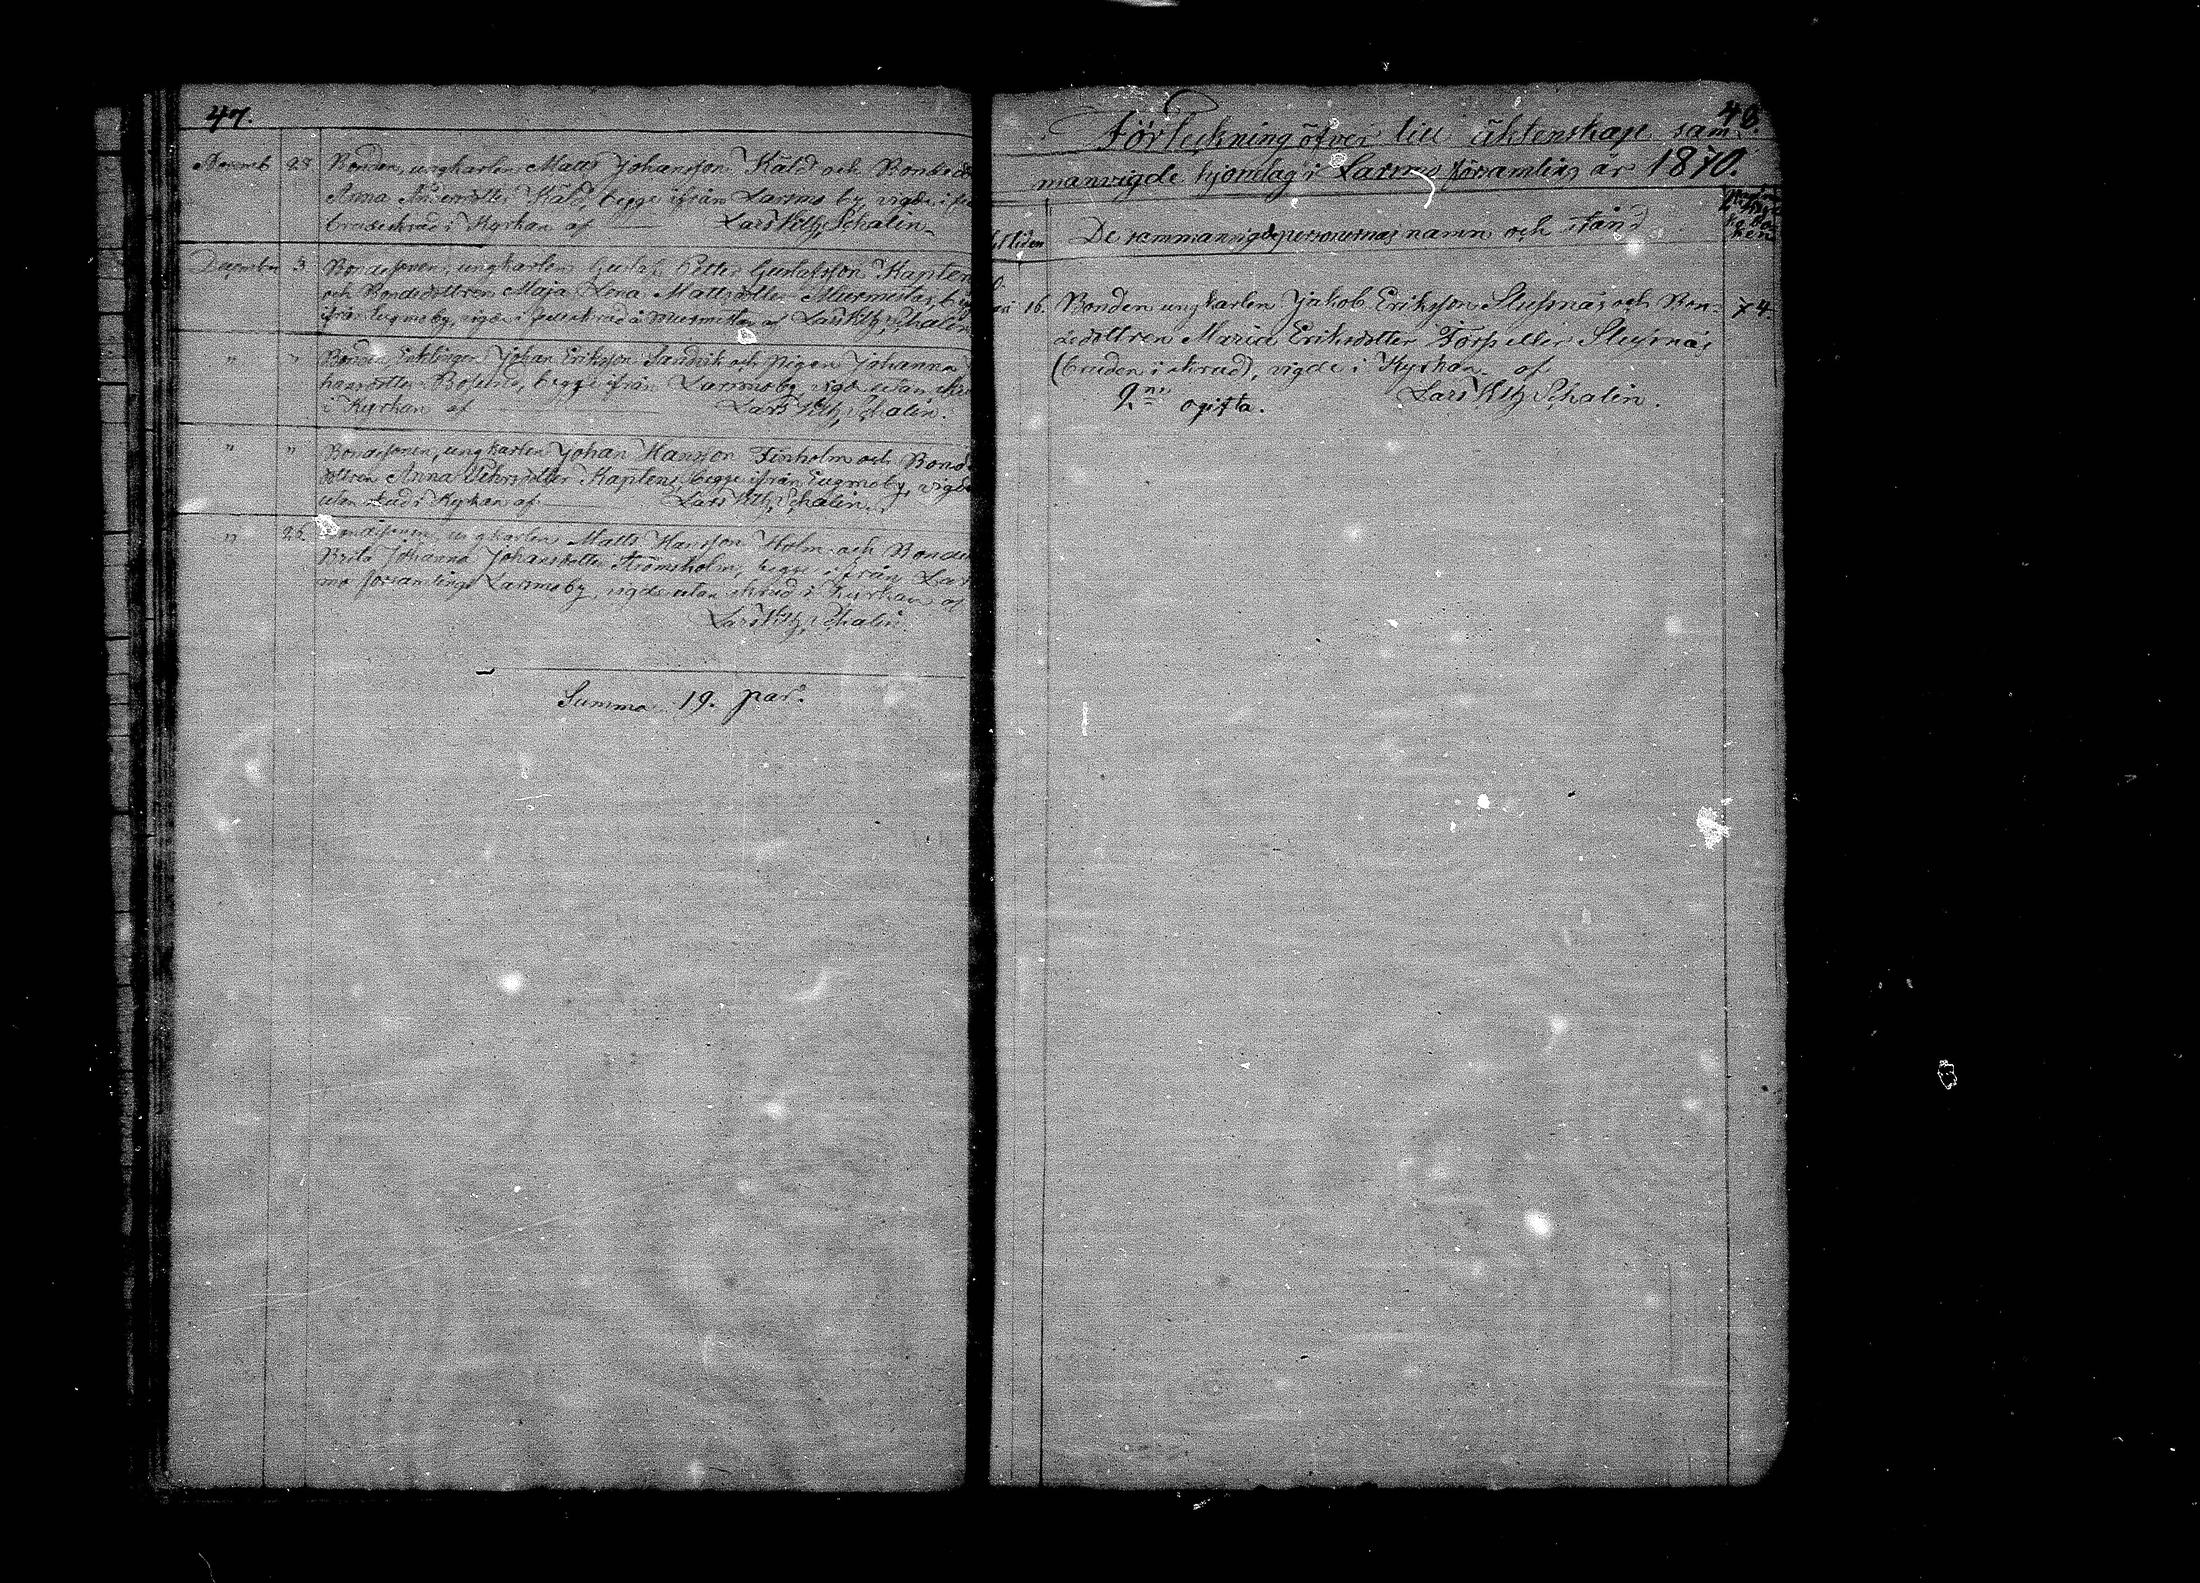 47.
Novemb. 28 Bonden, ungkarlen Matts Johansson Käld och Bondedo
Anna Andersdotter Käld, begge ifrån Larsmo by, vigde i
brudeskrud i Kyrkan af Lars Vilh. Schalin.
December 3 Bondesonen, ungkarlen Gustaf Petter Gustafsson Kapten
och Bondedottren Maja Lena Mattsdotter Murmestar,
ifrån Eugmo by, vigde i på Murmestar af Lars Vilh. Schalin
" " Bonden, Enklingen Johan Eriksson Sandvik och pigan Johanna
hansdotter Bosund, begge ifrån Larsmo by, vigde utan
i Kyrkan af Lars Vilh. Schalin.
" " Bondesonen, ungkarlen Johan Hansson Finholm och Bond
dottren Anna Kapten, begge ifrån Eugmo by, vigde
utan skrud i Kyrkan af Lars Vilh. Schalin.
" 26. Bondesonen, ungkarlen Matts Hansson Holm och Bonde
Brita Johanna Johansdotter Strömsholm, begge ifrån Lars
mo församling Larsmo by, vigde utan skrud i Kyrkan af
Lars Vilh. Schalin.
Summa 19. par.
48.
Förteckning öfver till äktenskap sam-
manvigde hjonelag i Larsmo församling år 1870.
tiden De sammanvigde personernas namn och stånd
16. Bonden ungkarlen Jakob Eriksson Slussnäs och Bon- 74.
dedottren Maria Eriksdotter Torp eller Slussnäs
(bruden i skrud), vigde i Kyrkan af
2ne ogifta. Lars Vilh. Schalin.